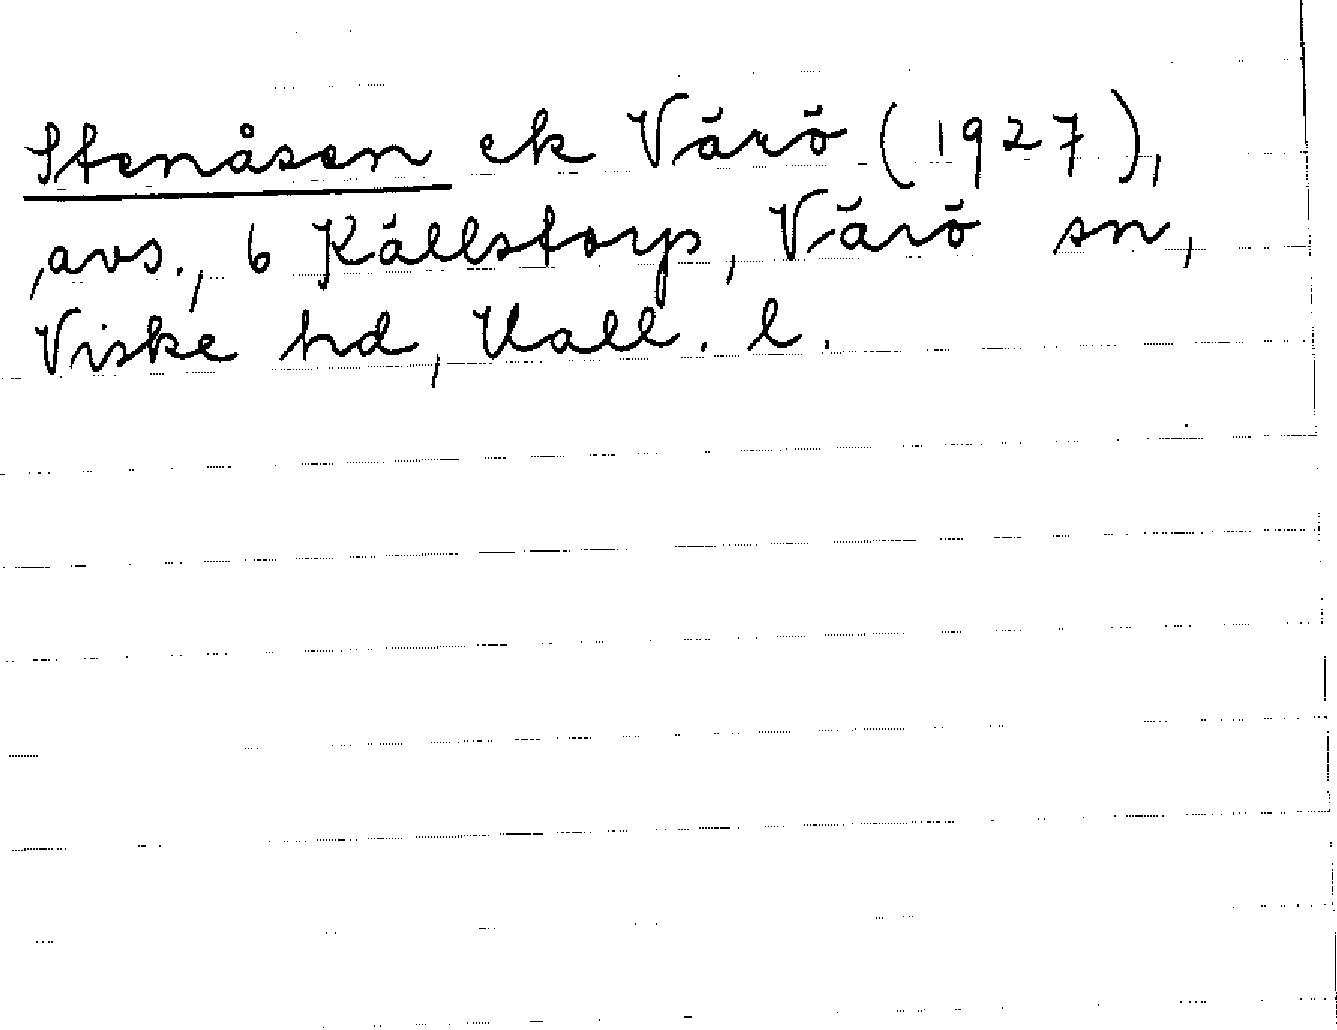 Stenåsen ek Värö (1927),
avs., 6 Källstorp, Värö sn,
Viske hd, Hall. l.